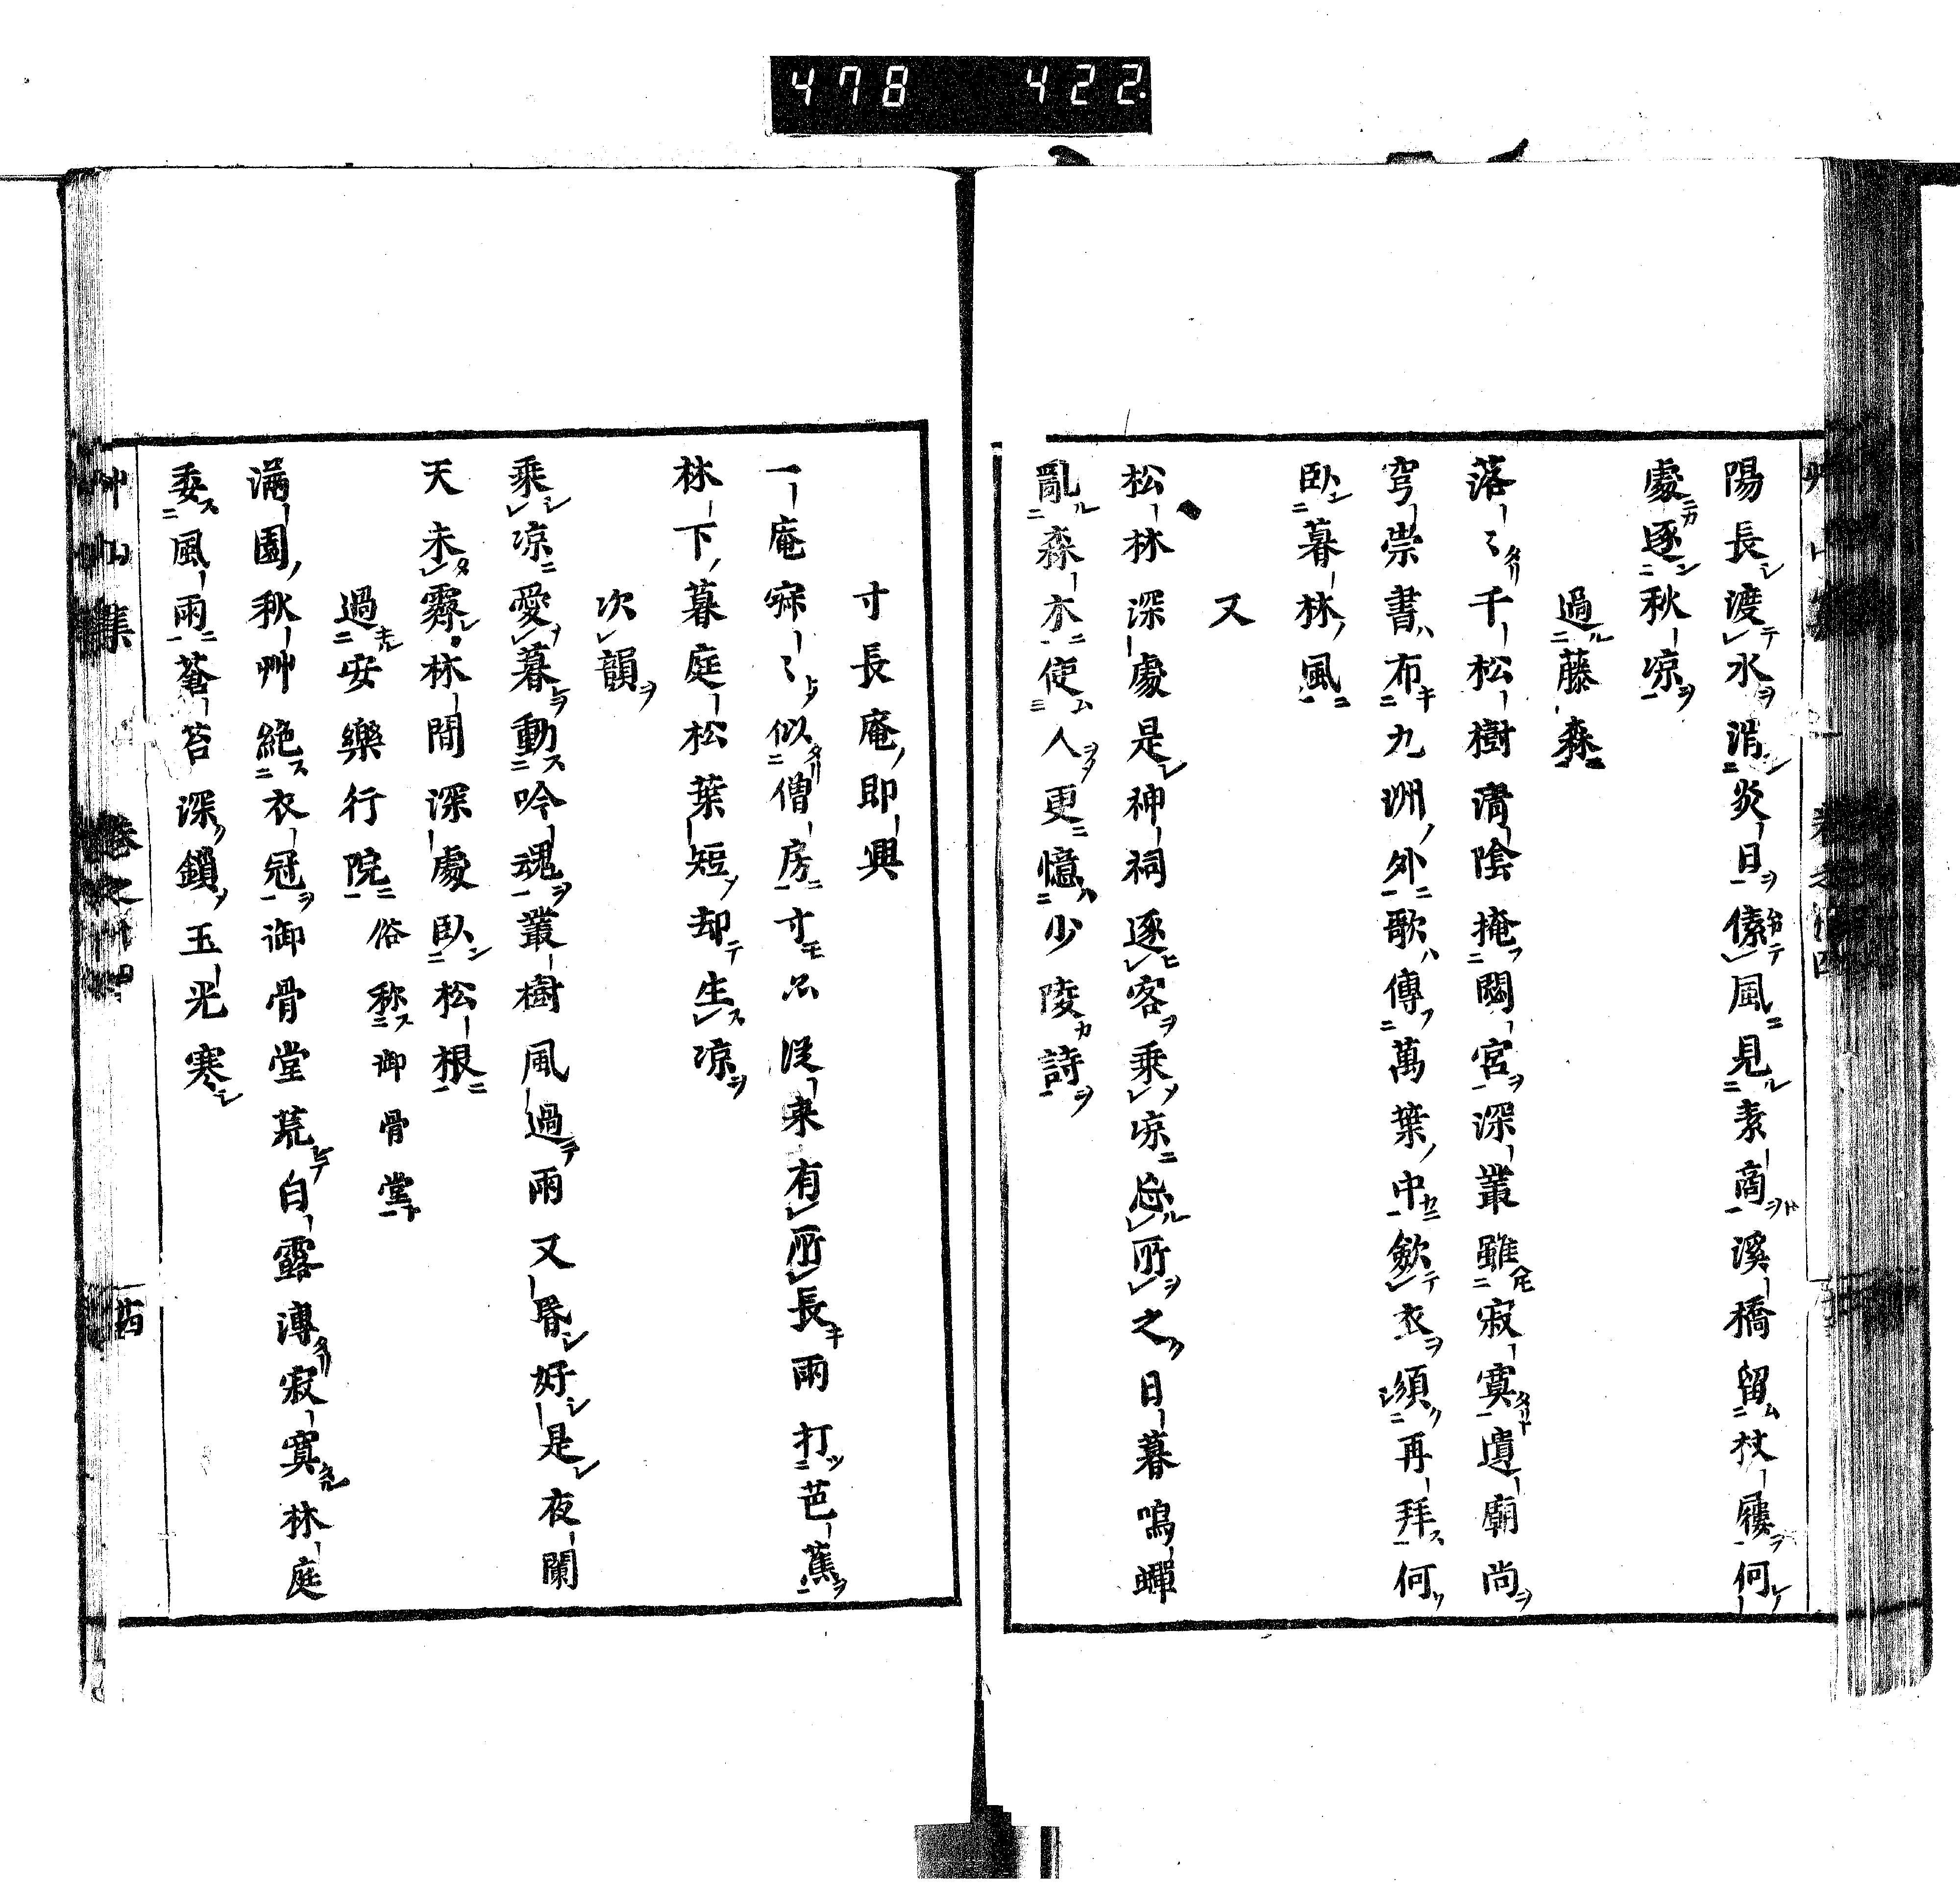 478 422
陽長渡水消炎日傃風見素商溪橋留杖屨何
處逐秋凉
過藤森
落〻千松樹清陰掩閟宮深叢雖寂寞遺廟尚
穹崇書布九洲外歌傳萬葉中歛衣須再拜何
臥暮林風
又
松林深處是神祠逐客乘凉忘所之日暮鳴蟬
亂森木使人更憶少陵詩
寸長庵即興
一庵寂〻似僧房寸名從来有所長雨打芭蕉
林下暮庭松葉短却生凉
次韻
乘凉愛暮動吟魂叢樹風過雨又昏好是夜闌
天未霽林間深處臥松根
過安樂行院俗称御骨堂
滿園秋艸絶衣冠御骨堂荒白露漙寂寞林庭
委風雨蒼苔深鎖玉光寒
艸山集 卷之 四